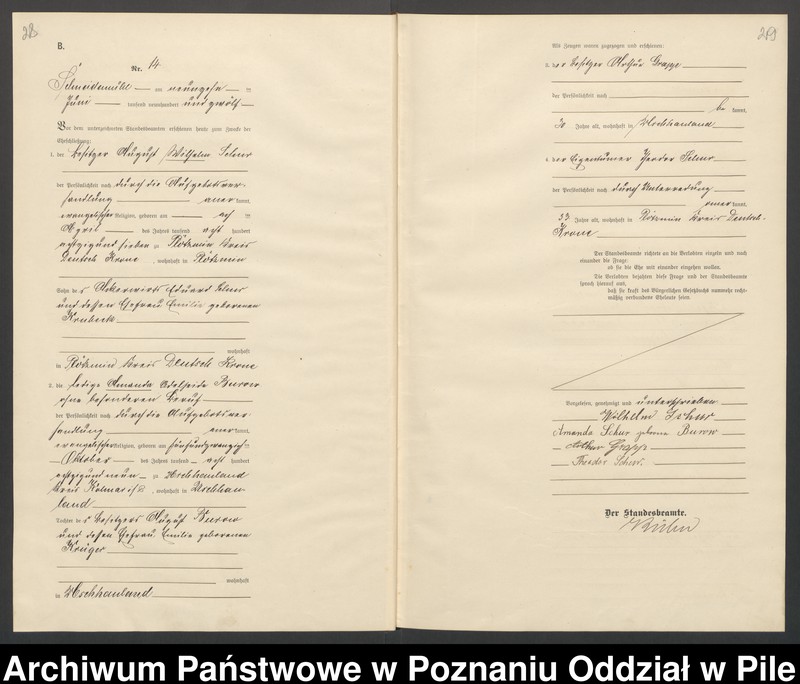 28
B.
Nr. 14
Schneidemühl am neunzehn ten
Juni tausend neunhundert und zwölf
Vor dem unterzeichneten Standesbeamten erschienen heute zum Zwecke der
Eheschließung:
1. der Besitzer August Wilhelm Schur
der Persönlichkeit nach durch die Aufgebotsver-
handlung aner kannt,
evangelischer Religion, geboren am ach ten
April des Jahres tausend acht hundert
achtzigund sieben zu Kreis
Deutsch Krone, wohnhaft in
Sohn des Ackerwirts Eduard Schur
und dessen Ehefrau Emilie geborenen
wohnhaft
in Kreis Deutsch Krone
2. die ledige Amanda Adelheide Burow
ohne besonderen Beruf
der Persönlichkeit nach durch die Aufgebotsver-
handlung aner kannt,
evangelischer Religion, geboren am fünfundzwanzigsten
Oktober des Jahres tausend acht hundert
achtzigund neun zu Uschhauland
Kreis Kolmar i/P., wohnhaft in Uschhau-
land
Tochter des Besitzers August Burow
und dessen Ehefrau Emilie geborenen
Krüger
wohnhaft
in Uschhauland
29
Als Zeugen waren zugezogen und erschienen:
3. der Besitzer Arthur Grapp
der Persönlichkeit nach
be kannt,
30 Jahre alt, wohnhaft in Uschhauland
4. der Eigentümer Theodor Schur
der Persönlichkeit nach durch Unterredung
aner kannt,
33 Jahre alt, wohnhaft in Kreis Deutsch-
Krone
Der Standesbeamte richtete an die Verlobten einzeln und nach
einander die Frage:
ob sie die Ehe mit einander eingehen wollen.
Die Verlobten bejahten diese Frage und der Standesbeamte
sprach hierauf aus,
daß sie kraft des Bürgerlichen Gesetzbuchs nunmehr recht-
mäßig verbundene Eheleute seien.
Vorgelesen, genehmigt und unterschrieben
Wilhelm Schur
Amanda Schur geborene Burow
Arthur Grapp
Theodor Schur.
Der Standesbeamte.
Archiwum Państwowe w Poznaniu Oddział w Pile